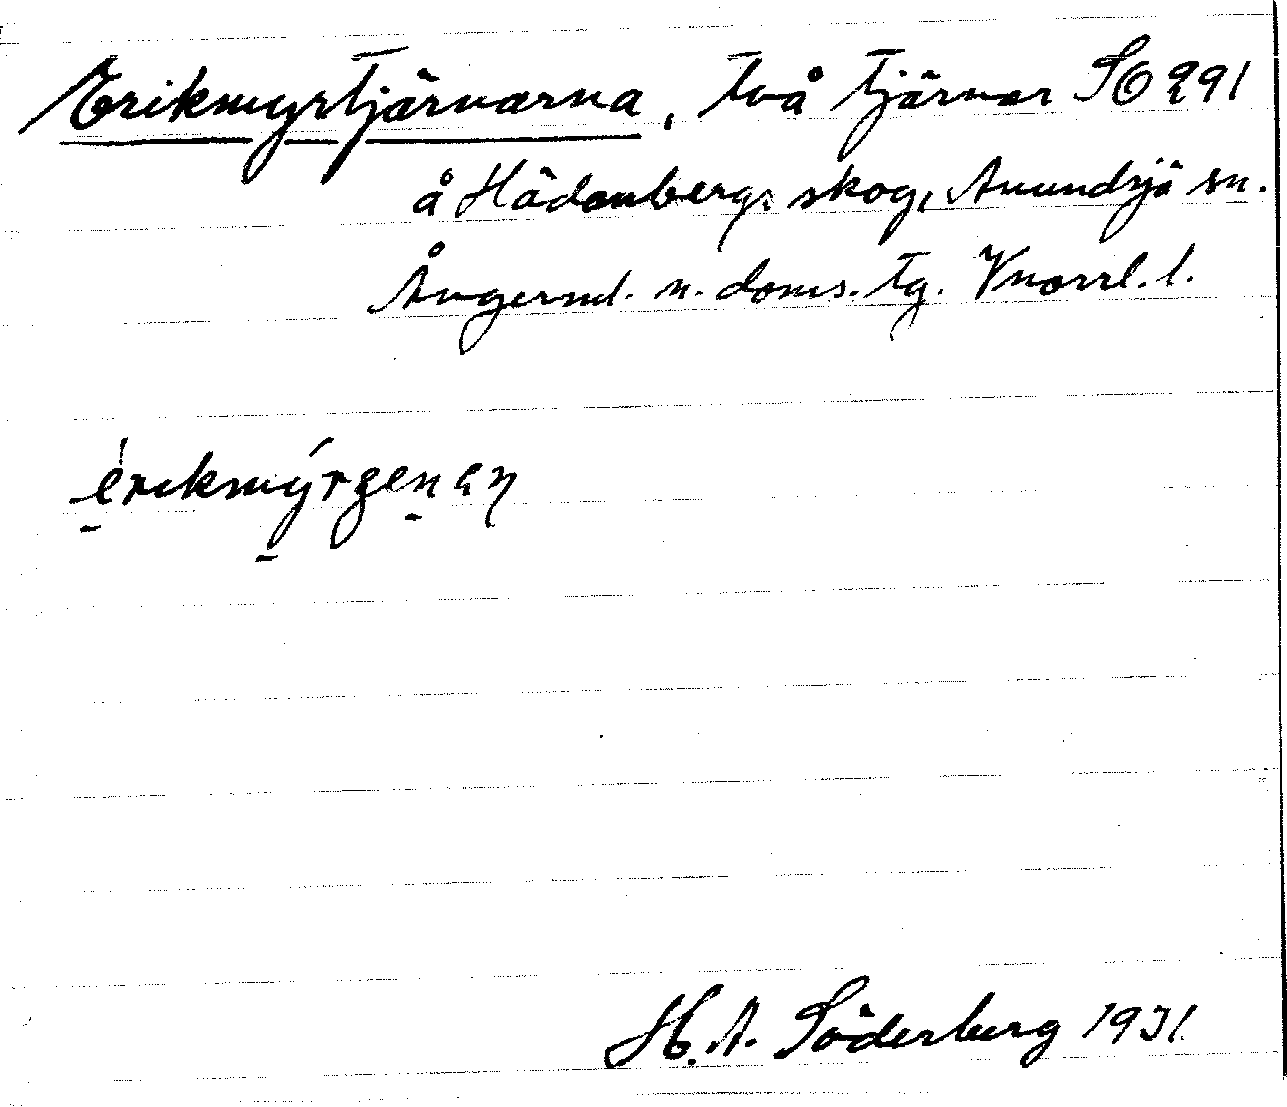 Erikmyrtjärnarna, två tjärnar SO 291
å Hädanbergs skog, Anundsjö sn.
Ångerml. n. doms. tg. Vnorrl. l.
érikmýrgenan
H. A. Söderberg 1931